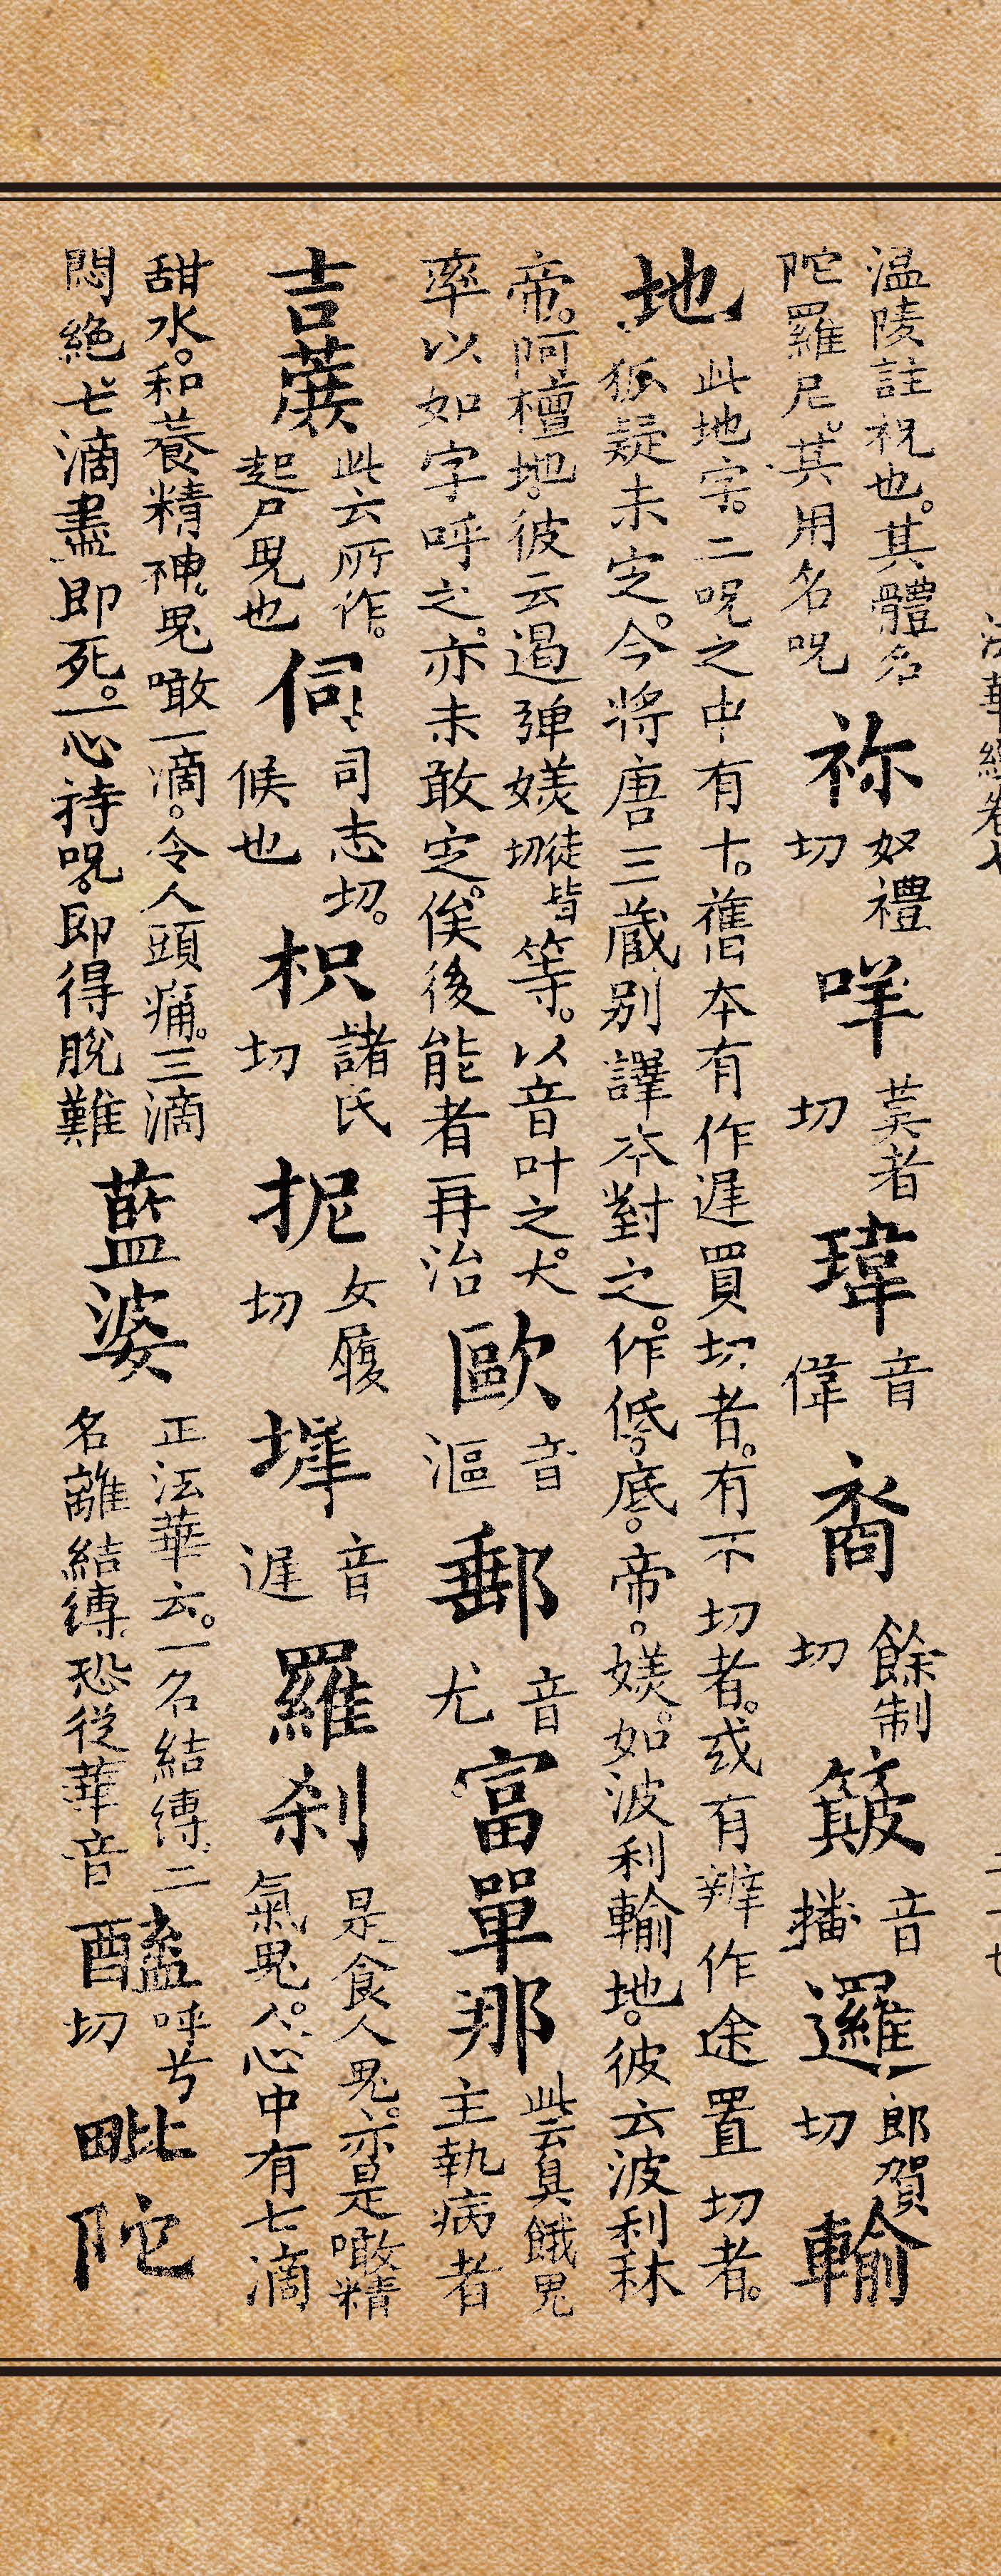 法華經卷七
溫陵註祝也。其體名陀羅尼。其用名呪 祢 奴禮切 咩 莫者切 瑋 音偉 裔 餘制切 簸 音播 邏 郎賀切 輸
地 此地字。二呪之中有十。舊本有作遲買切者。有不切者。或有辨作途置切者。狐疑未定。今將唐三藏別譯本對之。作低。底。帝。媄。如波利輸地。彼云波利秫
帝。阿檀地。彼云遏弾媄徒皆切等。以音叶之。犬率以如字呼之。亦未敢定。俟後能者再治 歐 音漚 郵 音尤 富單那 此云臭餓鬼主執病者
吉蔗 此云所作。起尸鬼也 伺 司志切。候也 枳 諸氏切 抳 女履切 墀 音遲 羅刹 是食人鬼。亦是噉精氣鬼。人心中有七滴
甜水。和養精神。鬼噉一滴。令人頭痛。三滴悶絕。七滴盡即死。一心持呪。即得脫難 藍婆 正法華云。一名結縛。二名離結縛。恐從華音 醯 呼兮切 毗陀